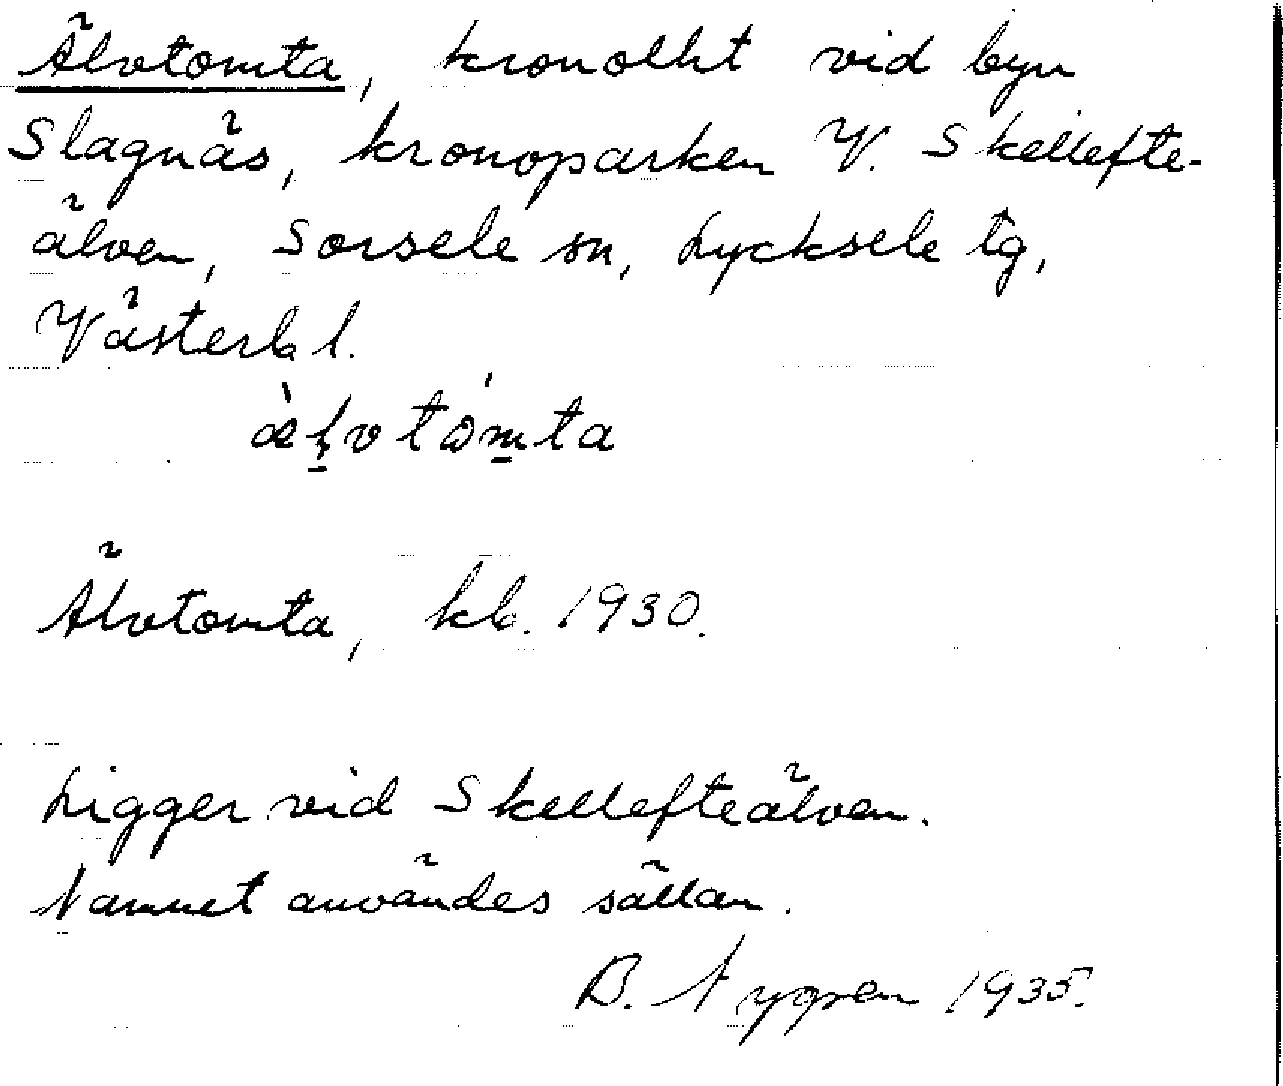 Älvtomta, kronolht vid byn
Slagnäs, kronoparken V. Skellefte-
älven, Sorsele sn, Lycksele tg,
Västerb l.
Älvtomta, kb. 1930.
Ligger vid Skellefteälven.
Namnet användes sällan.
B. Nygren 1935.